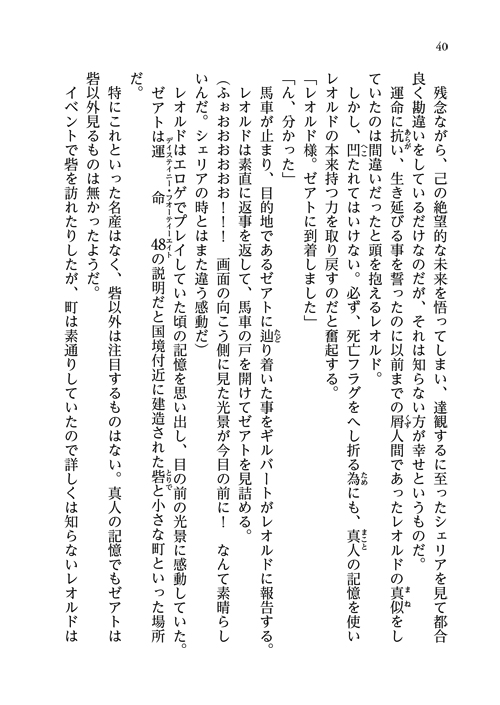 40
残念ながら、己の絶望的な未来を悟ってしまい、達観するに至ったシェリアを見て都合
良く勘違いをしているだけなのだが、それは知らない方が幸せというものだ。
運命に抗い、生き延びる事を誓ったのに以前までの屑人間であったレオルドの真似をし
ていたのは間違いだったと頭を抱えるレオルド。
しかし、凹たれてはいけない。必ず、死亡フラグをへし折る為にも、真人の記憶を使い
レオルドの本来持つ力を取り戻すのだと奮起する。
「レオルド様。ゼアトに到着しました」
「ん、分かった」
馬車が止まり、目的地であるゼアトに辿り着いた事をギルバートがレオルドに報告する。
レオルドは素直に返事を返して、馬車の戸を開けてゼアトを見詰める。
（ふぉおおおおおお！！！　画面の向こう側に見た光景が今目の前に！　なんて素晴らし
いんだ。シェリアの時とはまた違う感動だ）
レオルドはエロゲでプレイしていた頃の記憶を思い出し、目の前の光景に感動していた。
ゼアトは運命48の説明だと国境付近に建造された砦と小さな町といった場所
だ。
特にこれといった名産はなく、砦以外は注目するものはない。真人の記憶でもゼアトは
砦以外見るものは無かったようだ。
イベントで砦を訪れたりしたが、町は素通りしていたので詳しくは知らないレオルドは